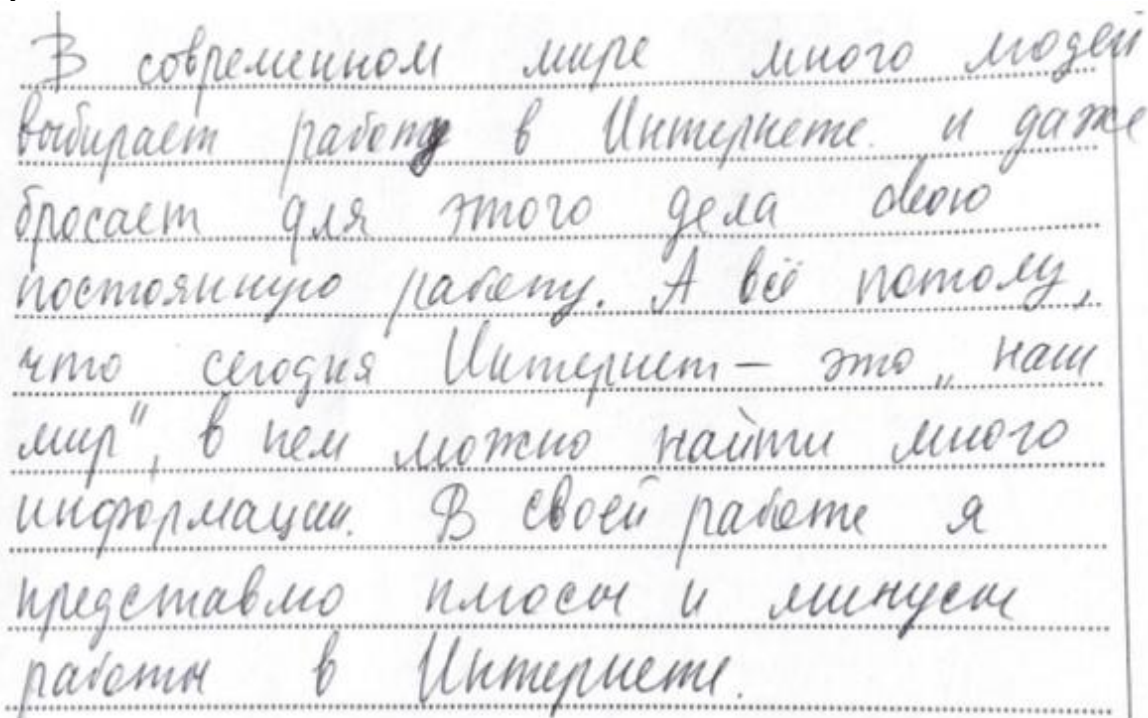 В современном мире много людей
выбирает работу в Интернете и даже
бросает для этого дела свою
постоянную работу. А всё потому,
что сегодня Интернет – это „наш
мир", в нем можно найти много
информации. В своей работе я
представлю плюсы и минусы
работы в Интернете.